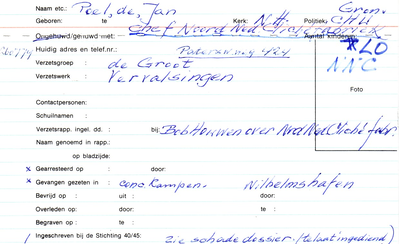 Naam etc.: Poel, de, Jan Gron.
Geboren: te Kerk: N.H. Politiek: C.H.U
Ongehuwd/gehuwd met: Chef Noord Ned Clichéfabriek Aantal kinderen
Huidig adres en telef.nr.: Paterswweg 424 LO
Verzetsgroep : de Groot N.N.C.
Verzetswerk : Vervalsingen
Foto
Contactpersonen:
Schuilnaam :
Verzetsrapp. ingel. dd. : bij: Bob Houwen over Nrd Ned Cliché fabr.
Naam genoemd in rapp.:
op bladzijde:
x Gearresteerd op : door:
x Gevangen gezeten in : conc. Kampen. Wilhelmshafen
Bevrijd op : uit : door:
Overleden op: door: te :
Begraven op : te :
Ingeschreven bij de Stichting 40/45: zie schade dossier. (te laat ingediend)